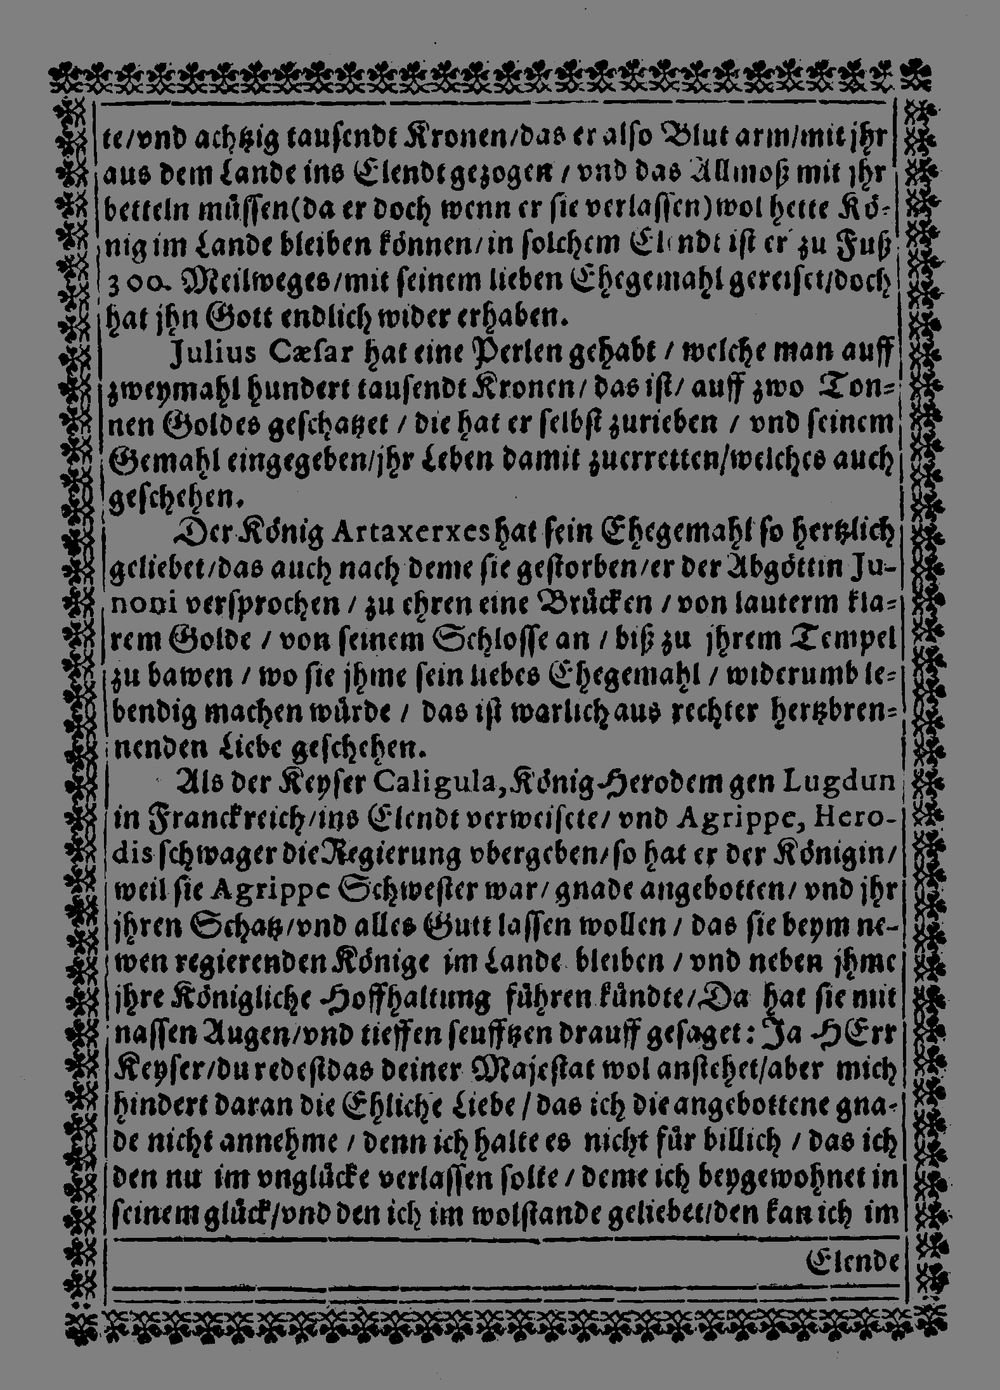 te/vnd achtzig tausendt Kronen/das er also Blut arm/mit jhr
aus dem Lande ins Elendt gezogen / vnd das Allmoß mit jhr
betteln müssen(da er doch wenn er sie verlassen)wol hette Kö-
nig im Lande bleiben können/in solchem Elendt ist er zu Fuß
300. Meilweges/mit seinem lieben Ehegemahl gereiset/doch
hat jhn Gott endlich wider erhaben.
Julius Cæsar hat eine Perlen gehabt / welche man auff
zweymahl hundert tausendt Kronen/ das ist/ auff zwo Ton-
nen Goldes geschatzet / die hat er selbst zurieben / vnd seinem
Gemahl eingegeben/jhr Leben damit zuerretten/welches auch
geschehen.
Der König Artaxerxes hat sein Ehegemahl so hertzlich
geliebet/das auch nach deme sie gestorben/er der Abgöttin Ju-
noni versprochen / zu ehren eine Brücken / von lauterm kla-
rem Golde / von seinem Schlosse an / biß zu jhrem Tempel
zu bawen / wo sie jhme sein liebes Ehegemahl / widerumb le-
bendig machen würde / das ist warlich aus rechter hertzbren-
nenden Liebe geschehen.
Als der Keyser Caligula, König Herodem gen Lugdun
in Franckreich/ins Elendt verweisete/ vnd Agrippe, Hero-
dis schwager die Regierung vbergeben/so hat er der Königin/
weil sie Agrippe Schwester war/ gnade angebotten/ vnd jhr
jhren Schatz/vnd alles Gutt lassen wollen / das sie beym ne-
wen regierenden Könige im Lande bleiben / vnd neben jhme
jhre Königliche Hoffhaltung führen kündte/Da hat sie mit
nassen Augen/vnd tieffen seufftzen drauff gesaget: Ja HErr
Keyser/du redest das deiner Majestat wol anstehet/aber mich
hindert daran die Ehliche Liebe / das ich die angebottene gna-
de nicht annehme / denn ich halte es nicht für billich / das ich
den nu im vnglücke verlassen solte / deme ich beygewohnet in
seinem glück/vnd den ich im wolstande geliebet/den kan ich im
Elende